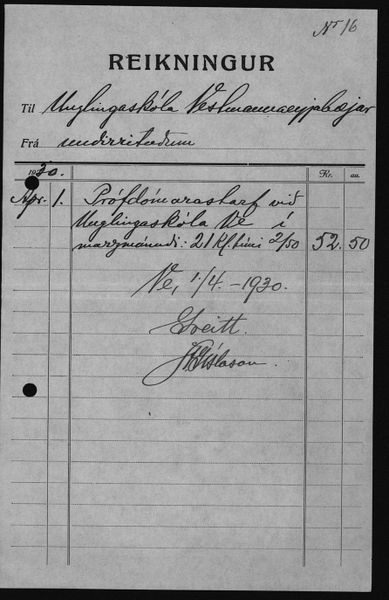 No 16
REIKNINGUR
Til Unglingaskóla Vestmannaeyjabæjar
Frá undirrituðum
1930. Kr. au.
Apr. 1. Prófdómarastarf við
Unglingaskóla Ve í
marzmánuði: 21 kl.tími 2/50 52.50
Ve, 1/4 - 1930.
Greitt.
Gíslason.